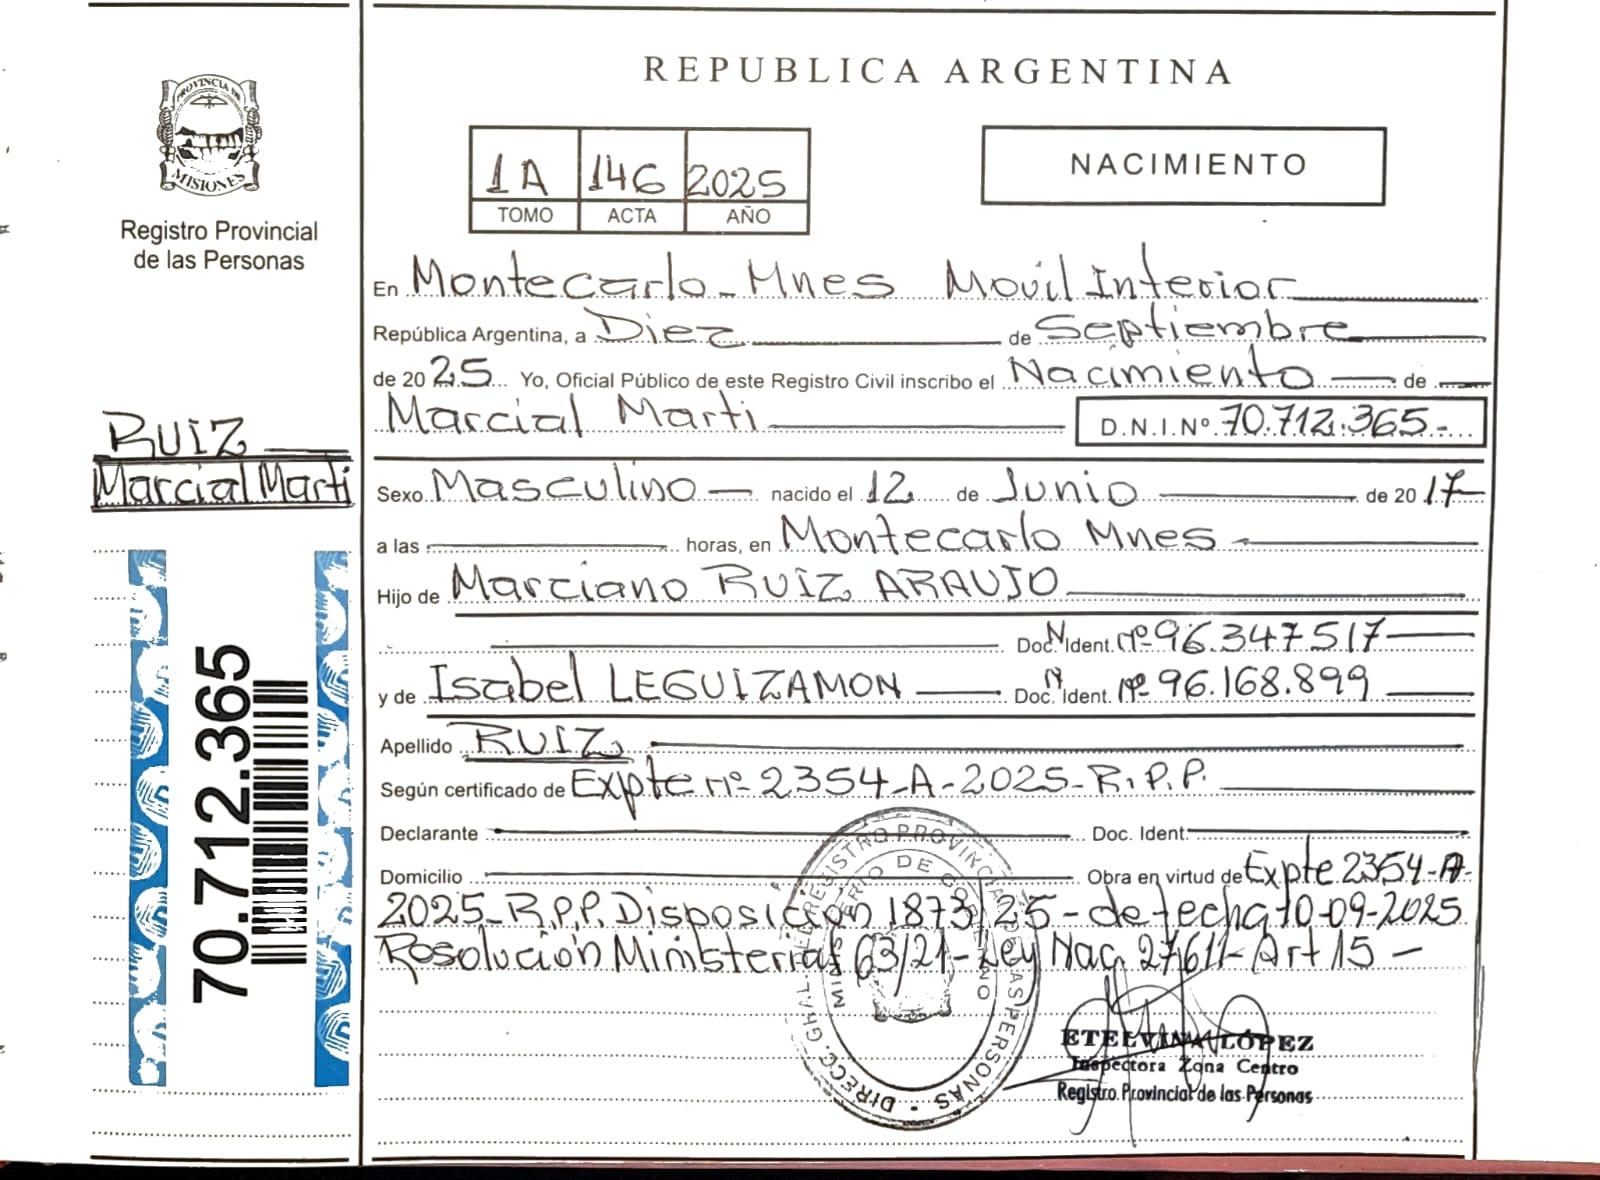 REPUBLICA ARGENTINA
PROVINCIA DE
MISIONES
Registro Provincial
de las Personas
1A 146 2025
TOMO ACTA AÑO
NACIMIENTO
En Montecarlo - Mnes Movil Interior
República Argentina, a Diez de Septiembre
de 2025 Yo, Oficial Público de este Registro Civil inscribo el Nacimiento de
Marcial Marti D.N.I.Nº 70.712.365.-
RUIZ
Marcial Marti
Sexo Masculino nacido el 12 de Junio de 2017
a las horas, en Montecarlo Mnes
Hijo de Marciano RUIZ ARAUJO
Doc. N Ident. Nº 96.347517
y de Isabel LEGUIZAMON Doc. N Ident. Nº 96.168.899
Apellido RUIZ
Según certificado de Expte nº 2354-A-2025-R.P.P.
Declarante Doc. Ident.
Domicilio Obra en virtud de Expte 2354-A-
2025-R.P.P. Disposición 1873/25-de fecha 10-09-2025
Resolución Ministerial 63/21-Ley Nac 27611-Art 15 -
70.712.365
ETELVINA LÓPEZ
Inspectora Zona Centro
Registro Provincial de las Personas